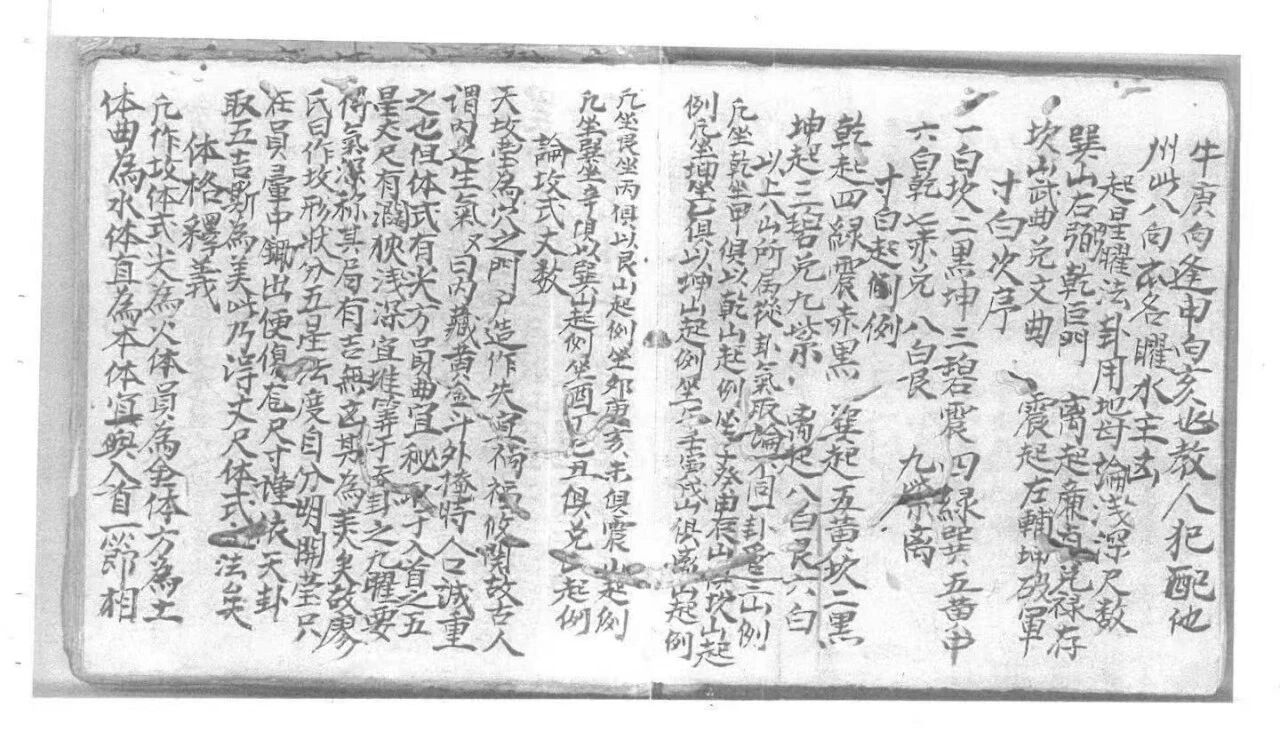 牛庚向逢申向亥也教人犯配他
州此八向亦名曜水主玄
起星曜法卦用地母論浅深尺数
巽山右弼乾巨門 离起廉貞兑禄存
坎山武曲兑文曲 震起左輔坤破軍
寸白次序
一白坎二黑坤三碧震四緑巽五黄中
六白乾七赤兑 八白艮 九紫离
寸白起例
乾起四緑震赤黑 巽起五黄坎二黑
坤起三碧兑九紫 离起八白艮六白
以上八山所属從卦氣取論不同一卦管三山例
凡坐乾坐甲俱以乾山起例坐子癸申辰山俱坎山起
例凡坐坤坐乙俱以坤山起例坐 壬寅戌山俱离山起例
凡坐艮坐丙俱以艮山起例坐卯庚亥未俱震山起例
凡坐巽坐辛俱以巽山起例坐酉丁巳丑俱兑山起例
論坟式丈数
夫坟塋為穴之門戸造作失宜禍福攸関故古人
謂内之生氣又曰内藏黄金斗外掩時人口誠重
之也但体式有尖方員曲直秘取于入首之五
星丈尺有濶狹浅深宜推筭于天卦之九曜要
得氣深称其局有吉無凶其為美矣故廖
氏曰作坟形状分五星法度自分明開茔只
在員暈中鋤出便傷 尺寸謹依天卦
取五吉斯為美此乃論丈尺体式之法矣
体格釋義
凡作坟体式尖為火体員為金体方為土
体曲為水体直為木体宜與入首一節相